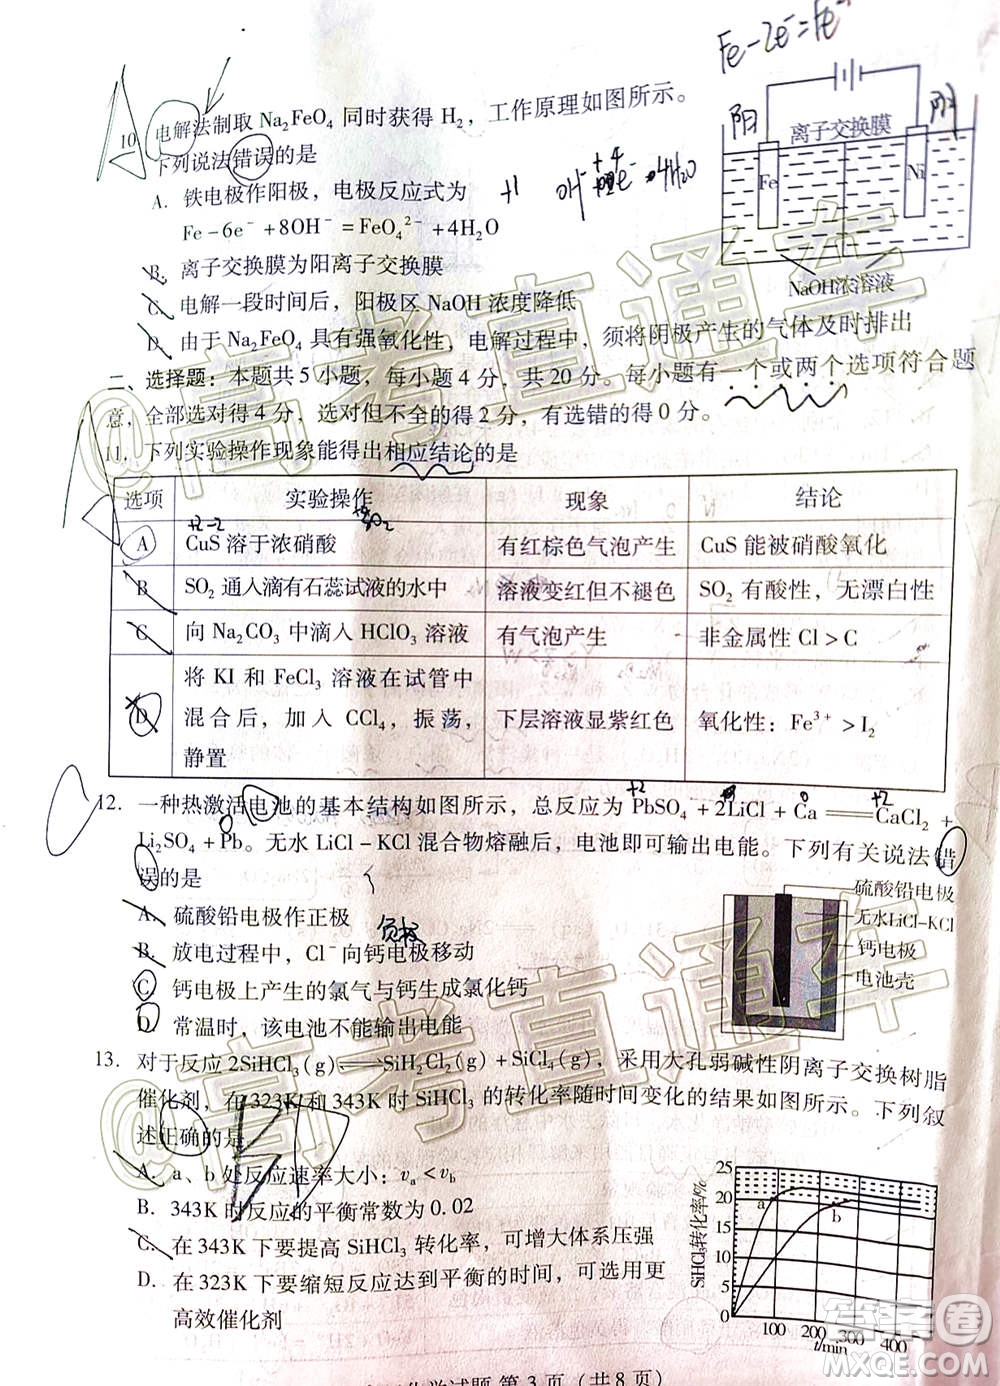 Fe-2e⁻=Fe
10. 电解法制取 Na₂FeO₄ 同时获得 H₂，工作原理如图所示。
下列说法错误的是
A. 铁电极作阳极，电极反应式为
Fe－6e⁻＋8OH⁻＝FeO₄²⁻＋4H₂O
B. 离子交换膜为阴离子交换膜
C. 电解一段时间后，阳极区 NaOH 浓度降低
D. 由于 Na₂FeO₄ 具有强氧化性，电解过程中，须将阴极产生的气体及时排出
阳
离子交换膜
Fe
Ni
NaOH浓溶液
二、选择题：本题共 5 小题，每小题 4 分，共 20 分。每小题有一个或两个选项符合题
意，全部选对得 4 分，选对但不全的得 2 分，有选错的得 0 分。
11. 下列实验操作现象能得出相应结论的是
选项 实验操作 现象 结论
A CuS 溶于浓硝酸 有红棕色气泡产生 CuS 能被硝酸氧化
B SO₂ 通入滴有石蕊试液的水中 溶液变红但不褪色 SO₂ 有酸性，无漂白性
C 向 Na₂CO₃ 中滴入 HClO₃ 溶液 有气泡产生 非金属性 Cl＞C
D 将 KI 和 FeCl₃ 溶液在试管中
混合后，加入 CCl₄，振荡，
静置 下层溶液显紫红色 氧化性：Fe³⁺＞I₂
12. 一种热激活电池的基本结构如图所示，总反应为 PbSO₄＋2LiCl＋Ca＝CaCl₂＋
Li₂SO₄＋Pb。无水 LiCl－KCl 混合物熔融后，电池即可输出电能。下列有关说法错
误的是
A. 硫酸铅电极作正极
负极
B. 放电过程中，Cl⁻向钙电极移动
C 钙电极上产生的氯气与钙生成氯化钙
D. 常温时，该电池不能输出电能
硫酸铅电极
无水LiCl-KCl
钙电极
电池壳
13. 对于反应 2SiHCl₃(g)⇌SiH₂Cl₂(g)＋SiCl₄(g)，采用大孔弱碱性阴离子交换树脂
催化剂，在 323K 和 343K 时 SiHCl₃ 的转化率随时间变化的结果如图所示。下列叙
述正确的是
A. a、b 处反应速率大小：vₐ＜v_b
B. 343K 时反应的平衡常数为 0.02
C. 在 343K 下要提高 SiHCl₃ 转化率，可增大体系压强
D. 在 323K 下要缩短反应达到平衡的时间，可选用更
高效催化剂
SiHCl₃转化率/%
25
20
15
10
5
0
a
b
100 200 300 400
t/min
化学试题 第 3 页（共 8 页）
@高考直通车
@高考直通车
答案圈
MXQE.COM